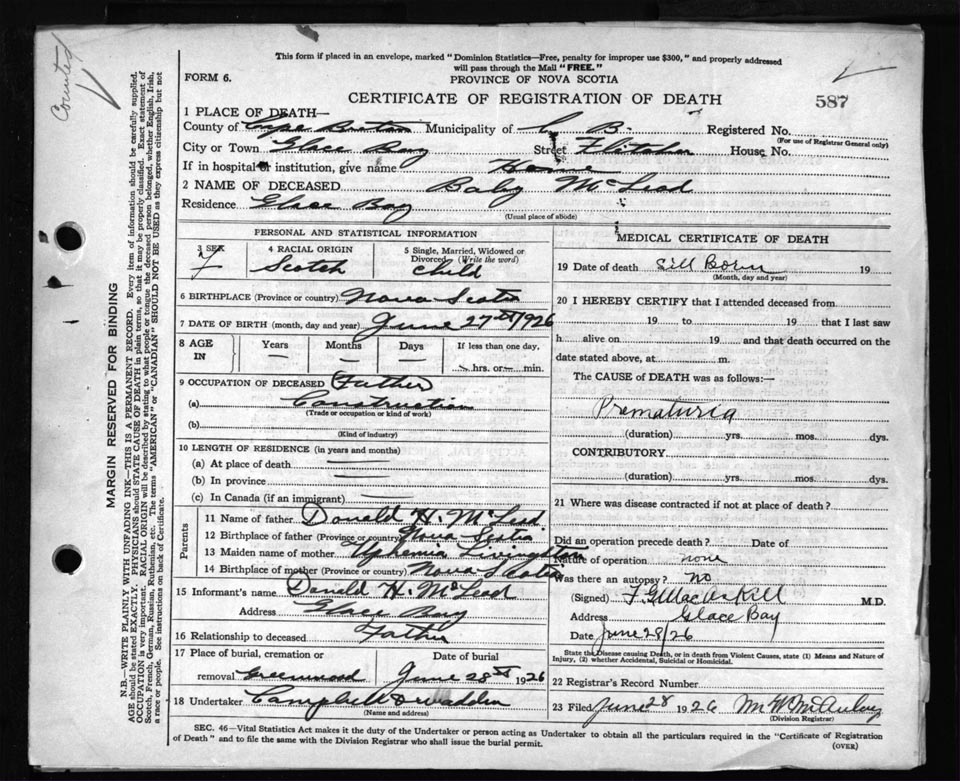 This form if placed in an envelope, marked "Dominion Statistics—Free, penalty for improper use $300," and properly addressed
will pass through the Mail "FREE."
FORM 6.
PROVINCE OF NOVA SCOTIA
CERTIFICATE OF REGISTRATION OF DEATH
587
Counted
MARGIN RESERVED FOR BINDING
N.B.—WRITE PLAINLY WITH UNFADING INK—THIS IS A PERMANENT RECORD. Every item of information should be carefully supplied.
AGE should be stated EXACTLY. PHYSICIANS should STATE CAUSE OF DEATH in plain terms, so that it may be properly classified. Exact statement of
OCCUPATION is very important. RACIAL ORIGIN will be described by stating to what people or tongue the deceased person belonged, whether English, Irish,
Scotch, French, German, Russian, Ruthenian, etc. The terms "AMERICAN" or "CANADIAN" SHOULD NOT BE USED as they express citizenship but not
a race or people. See instructions on back of Certificate.
1 PLACE OF DEATH—
County of Cape Breton Municipality of C. B. Registered No.
(For use of Registrar General only)
City or Town Glace Bay Street House No.
If in hospital or institution, give name Home
2 NAME OF DECEASED Baby McLeod
Residence Glace Bay
(Usual place of abode)
PERSONAL AND STATISTICAL INFORMATION
3 SEX
F
4 RACIAL ORIGIN
Scotch
5 Single, Married, Widowed or
Divorced (Write the word)
Child
6 BIRTHPLACE (Province or country) Nova Scotia
7 DATE OF BIRTH (month, day and year) June 27th 1926
8 AGE IN Years Months Days If less than one day,
— — — hrs. or — min.
9 OCCUPATION OF DECEASED (Father
(a) Construction
(Trade or occupation or kind of work)
(b)
(Kind of industry)
10 LENGTH OF RESIDENCE (in years and months)
(a) At place of death —
(b) In province —
(c) In Canada (if an immigrant) —
Parents
11 Name of father Donald H. McLeod.
12 Birthplace of father (Province or country) Nova Scotia
13 Maiden name of mother Uphemia Livingston
14 Birthplace of mother (Province or country) Nova Scotia
15 Informant's name Donald H. McLeod
Address Glace Bay
16 Relationship to deceased Father
17 Place of burial, cremation or Date of burial
removal Greenwood June 28th 1926
18 Undertaker Campbell
(Name and address)
MEDICAL CERTIFICATE OF DEATH
19 Date of death Still Born 19
(Month, day and year)
20 I HEREBY CERTIFY that I attended deceased from
19 to 19 that I last saw
h alive on 19 and that death occurred on the
date stated above, at m.
The CAUSE of DEATH was as follows:—
Prematuria
(duration) yrs. mos. dys.
CONTRIBUTORY
(duration) yrs. mos. dys.
21 Where was disease contracted if not at place of death?
Did an operation precede death? Date of
Nature of operation none
Was there an autopsy? No
(Signed) MacAskill M.D.
Address Glace Bay
Date June 28/26
State the Disease causing Death, or in death from Violent Causes, state (1) Means and Nature of
Injury, (2) whether Accidental, Suicidal or Homicidal.
22 Registrar's Record Number
23 Filed June 28 1926 McAulay
(Division Registrar)
SEC. 46—Vital Statistics Act makes it the duty of the Undertaker or person acting as Undertaker to obtain all the particulars required in the "Certificate of Registration
of Death" and to file the same with the Division Registrar who shall issue the burial permit.
(OVER)